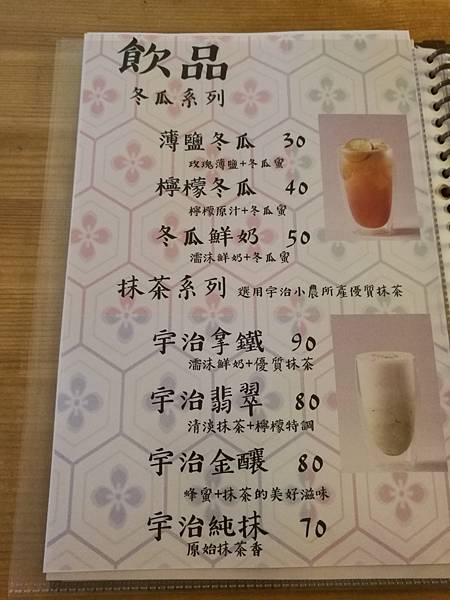 飲品
冬瓜系列
薄鹽冬瓜 30
玫瑰薄鹽+冬瓜蜜
檸檬冬瓜 40
檸檬原汁+冬瓜蜜
冬瓜鮮奶 50
濡沫鮮奶+冬瓜蜜
抹茶系列 選用宇治小農所產優質抹茶
宇治拿鐵 90
濡沫鮮奶+優質抹茶
宇治翡翠 80
清淡抹茶+檸檬特調
宇治金釀 80
蜂蜜+抹茶的美好滋味
宇治純抹 70
原始抹茶香